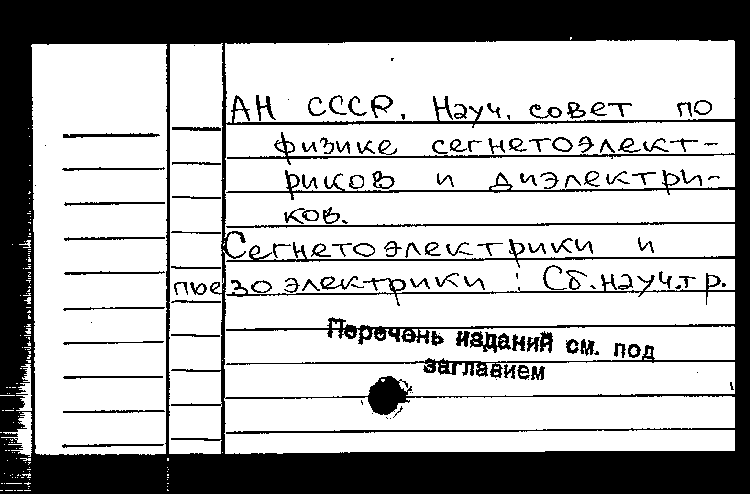 АН СССР. Науч. совет по
физике сегнетоэлект-
риков и диэлектри-
ков.
Сегнетоэлектрики и
пьезоэлектрики : Сб. науч. тр.
Перечень изданий см. под
заглавием